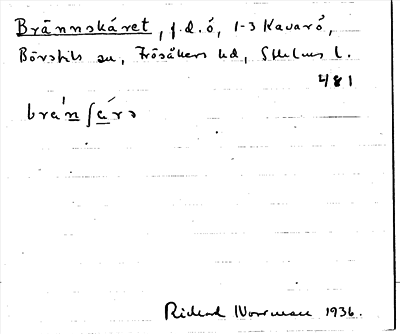 Brännskäret, f.d. ö, 1-3 Kavarö,
Börstils sn, Frösåkers hd, Sthlms l.
481
brä́nʃä́rə
Richard Norrman 1936.